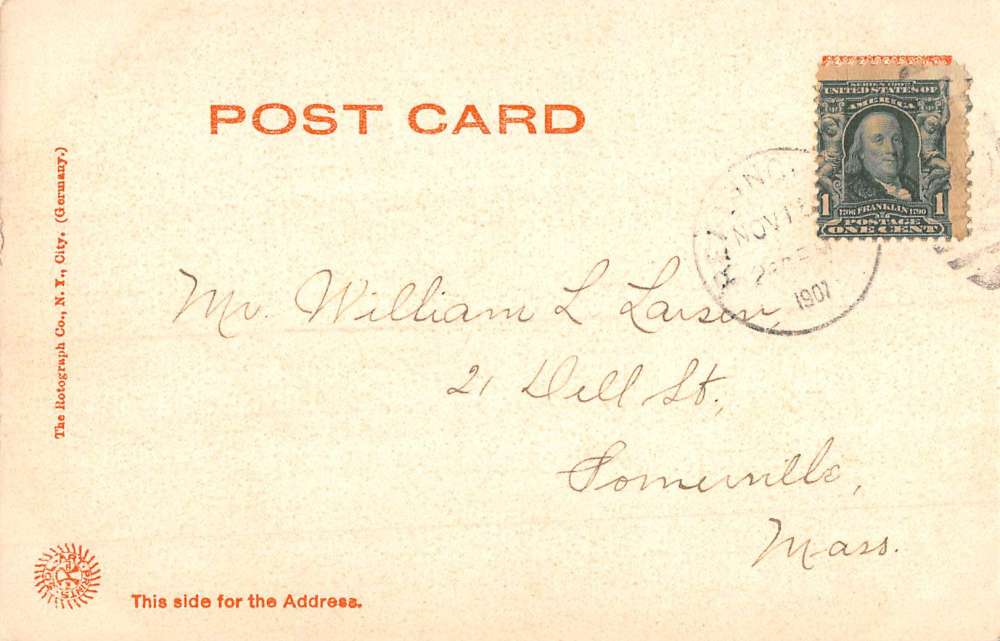 POST CARD
SERIES 1902
UNITED STATES OF
AMERICA
1 1706 FRANKLIN 1790 1
POSTAGE
ONE CENT
NOV
1907
Mr. William L Larsen,
21 Dell St.,
Somerville,
Mass.
The Rotograph Co., N. Y., City. (Germany.)
This side for the Address.